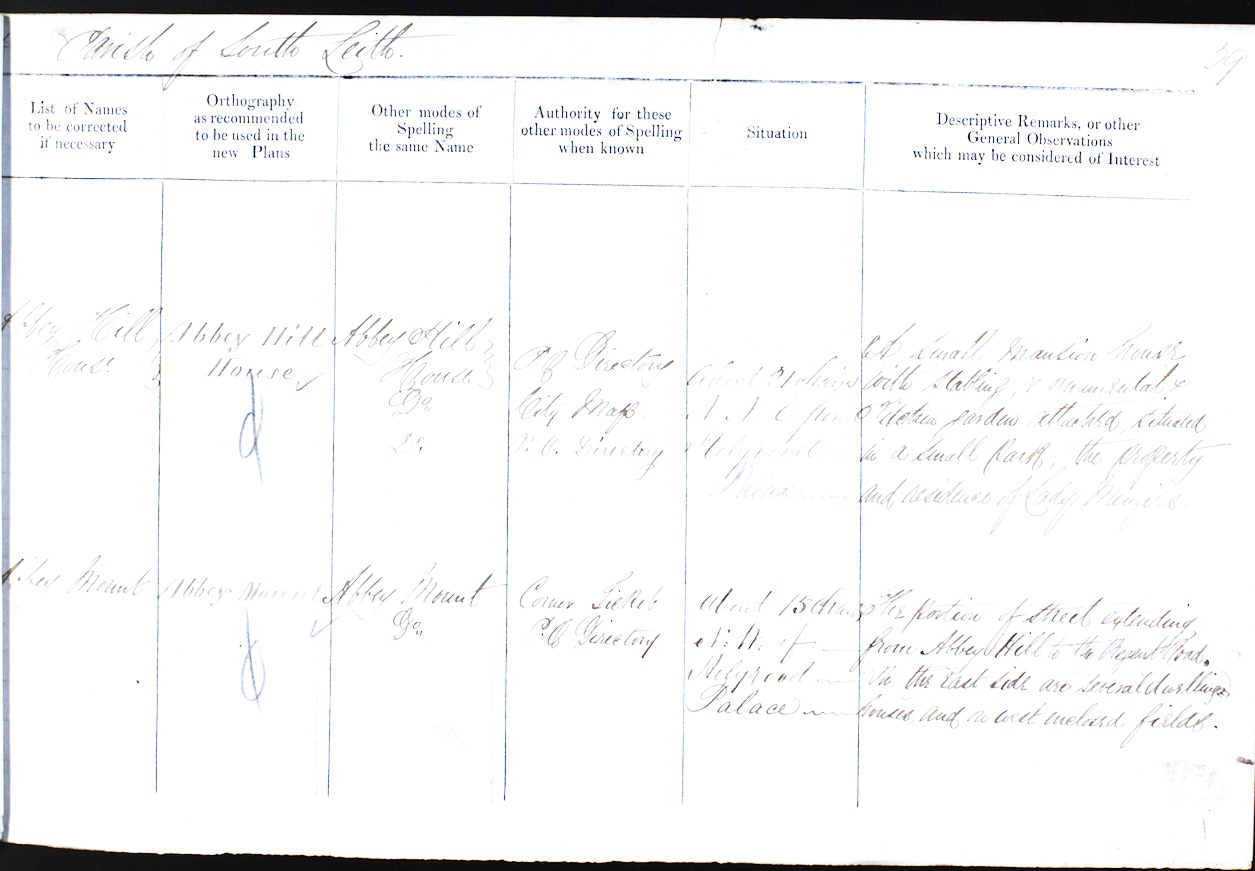 Parish of South Leith.
59
List of Names
to be corrected
if necessary
Orthography
as recommended
to be used in the
new Plans
Other modes of
Spelling
the same Name
Authority for these
other modes of Spelling
when known
Situation
Descriptive Remarks, or other
General Observations
which may be considered of Interest
Abbey Hill
House
Abbey Hill
House
Abbey Hill
House
Do.
Do.
P.O. Directory
City Map.
P.O. Directory
about 21 chains
N. N. E from
Holyrood
Palace
A small mansion house
with stabling, & ornamental &
Kitchen garden attached, situated
in a small Park, the property
and residence of Lady Menzies.
Abbey Mount
Abbey Mount
Abbey Mount
Do.
Corner Ticket
P.O. Directory
about 15 chains
N. of
Holyrood
Palace
The portion of street extending
from Abbey Hill to the Regent Road.
On the east side are several dwelling
houses, and on west enclosed fields.